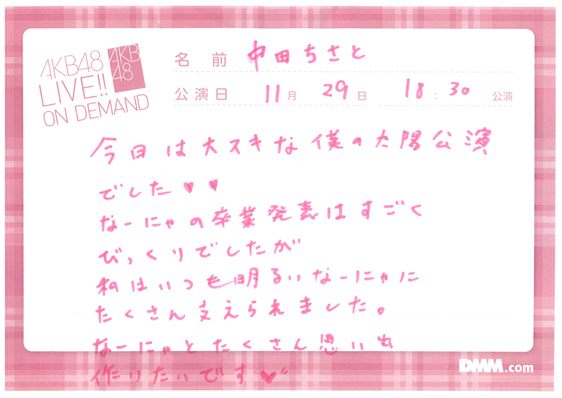 AKB48
LIVE!!
ON DEMAND
AKB
48
名前 中田ちさと
公演日 11月 29日 18:30 公演
今日は大スキな僕の太陽公演
でした♥♥
なーにゃの卒業発表はすごく
びっくりでしたが
私はいつも明るいなーにゃに
たくさん支えられました。
なーにゃとたくさん思い出
作りたいです♥
DMM.com